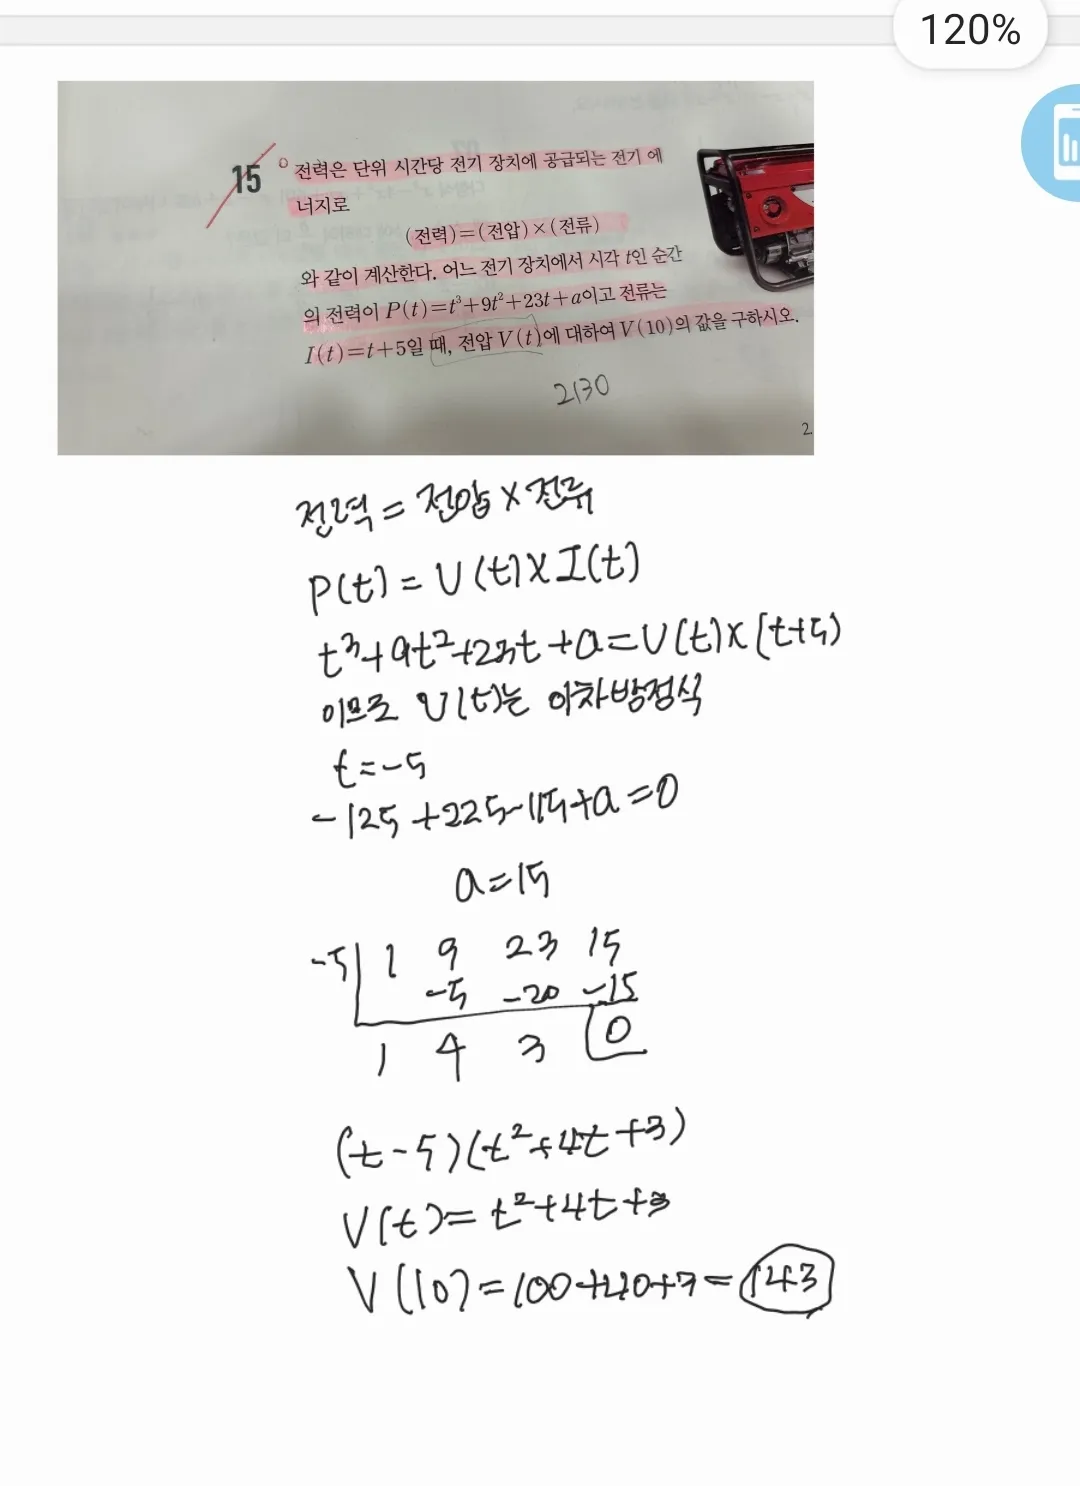 120%
15 전력은 단위 시간당 전기 장치에 공급되는 전기 에
너지로
(전력)=(전압)×(전류)
와 같이 계산한다. 어느 전기 장치에서 시각 t인 순간
의 전력이 P(t)=t³+9t²+23t+a이고 전류는
I(t)=t+5일 때, 전압 V(t)에 대하여 V(10)의 값을 구하시오.
2130
2
전력 = 전압 × 전류
P(t) = V(t) × I(t)
t³+9t²+23t+a=V(t)×(t+5)
이므로 V(t)는 이차방정식
t=-5
-125+225-115+a=0
a=15
-5 1 9 23 15
-5 -20 -15
1 4 3 0
(t-5)(t²+4t+3)
V(t)=t²+4t+3
V(10)=100+40+3=143